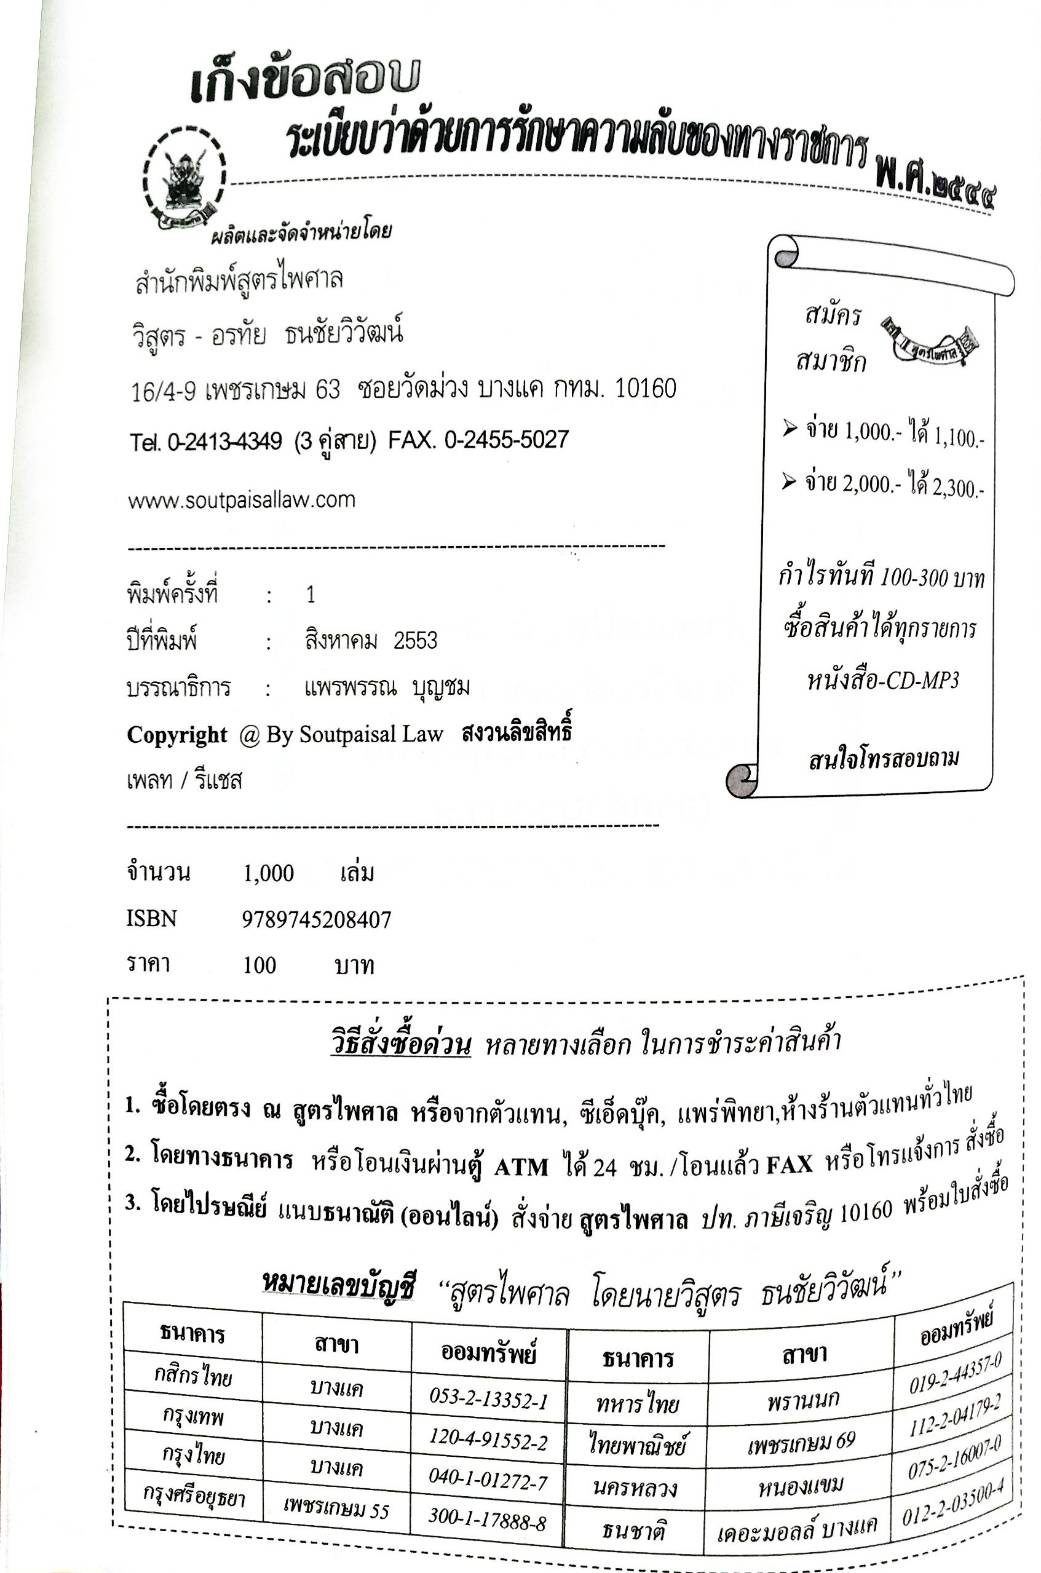 เก็งข้อสอบ
ระเบียบว่าด้วยการรักษาความลับของทางราชการ พ.ศ.๒๕๔๔
ผลิตและจัดจำหน่ายโดย
สำนักพิมพ์สูตรไพศาล
วิสูตร - อรทัย ธนชัยวิวัฒน์
16/4-9 เพชรเกษม 63 ซอยวัดม่วง บางแค กทม. 10160
Tel. 0-2413-4349 (3 คู่สาย) FAX. 0-2455-5027
www.soutpaisallaw.com
สมัคร
สมาชิก
สูตรไพศาล
➢ จ่าย 1,000.- ได้ 1,100.-
➢ จ่าย 2,000.- ได้ 2,300.-
กำไรทันที 100-300 บาท
ซื้อสินค้าได้ทุกรายการ
หนังสือ-CD-MP3
สนใจโทรสอบถาม
พิมพ์ครั้งที่ : 1
ปีที่พิมพ์ : สิงหาคม 2553
บรรณาธิการ : แพรพรรณ บุญชม
Copyright @ By Soutpaisal Law สงวนลิขสิทธิ์
เพลท / รีแชส
จำนวน 1,000 เล่ม
ISBN 9789745208407
ราคา 100 บาท
วิธีสั่งซื้อด่วน หลายทางเลือก ในการชำระค่าสินค้า
1. ซื้อโดยตรง ณ สูตรไพศาล หรือจากตัวแทน, ซีเอ็ดบุ๊ค, แพร่พิทยา,ห้างร้านตัวแทนทั่วไทย
2. โดยทางธนาคาร หรือโอนเงินผ่านตู้ ATM ได้ 24 ชม. /โอนแล้ว FAX หรือโทรแจ้งการ สั่งซื้อ
3. โดยไปรษณีย์ แนบธนาณัติ (ออนไลน์) สั่งจ่าย สูตรไพศาล ปท. ภาษีเจริญ 10160 พร้อมใบสั่งซื้อ
หมายเลขบัญชี “สูตรไพศาล โดยนายวิสูตร ธนชัยวิวัฒน์”
ธนาคาร สาขา ออมทรัพย์ ธนาคาร สาขา ออมทรัพย์
กสิกรไทย บางแค 053-2-13352-1 ทหารไทย พรานนก 019-2-44357-0
กรุงเทพ บางแค 120-4-91552-2 ไทยพาณิชย์ เพชรเกษม 69 112-2-04179-2
กรุงไทย บางแค 040-1-01272-7 นครหลวง หนองแขม 075-2-16007-0
กรุงศรีอยุธยา เพชรเกษม 55 300-1-17888-8 ธนชาติ เดอะมอลล์ บางแค 012-2-03500-4